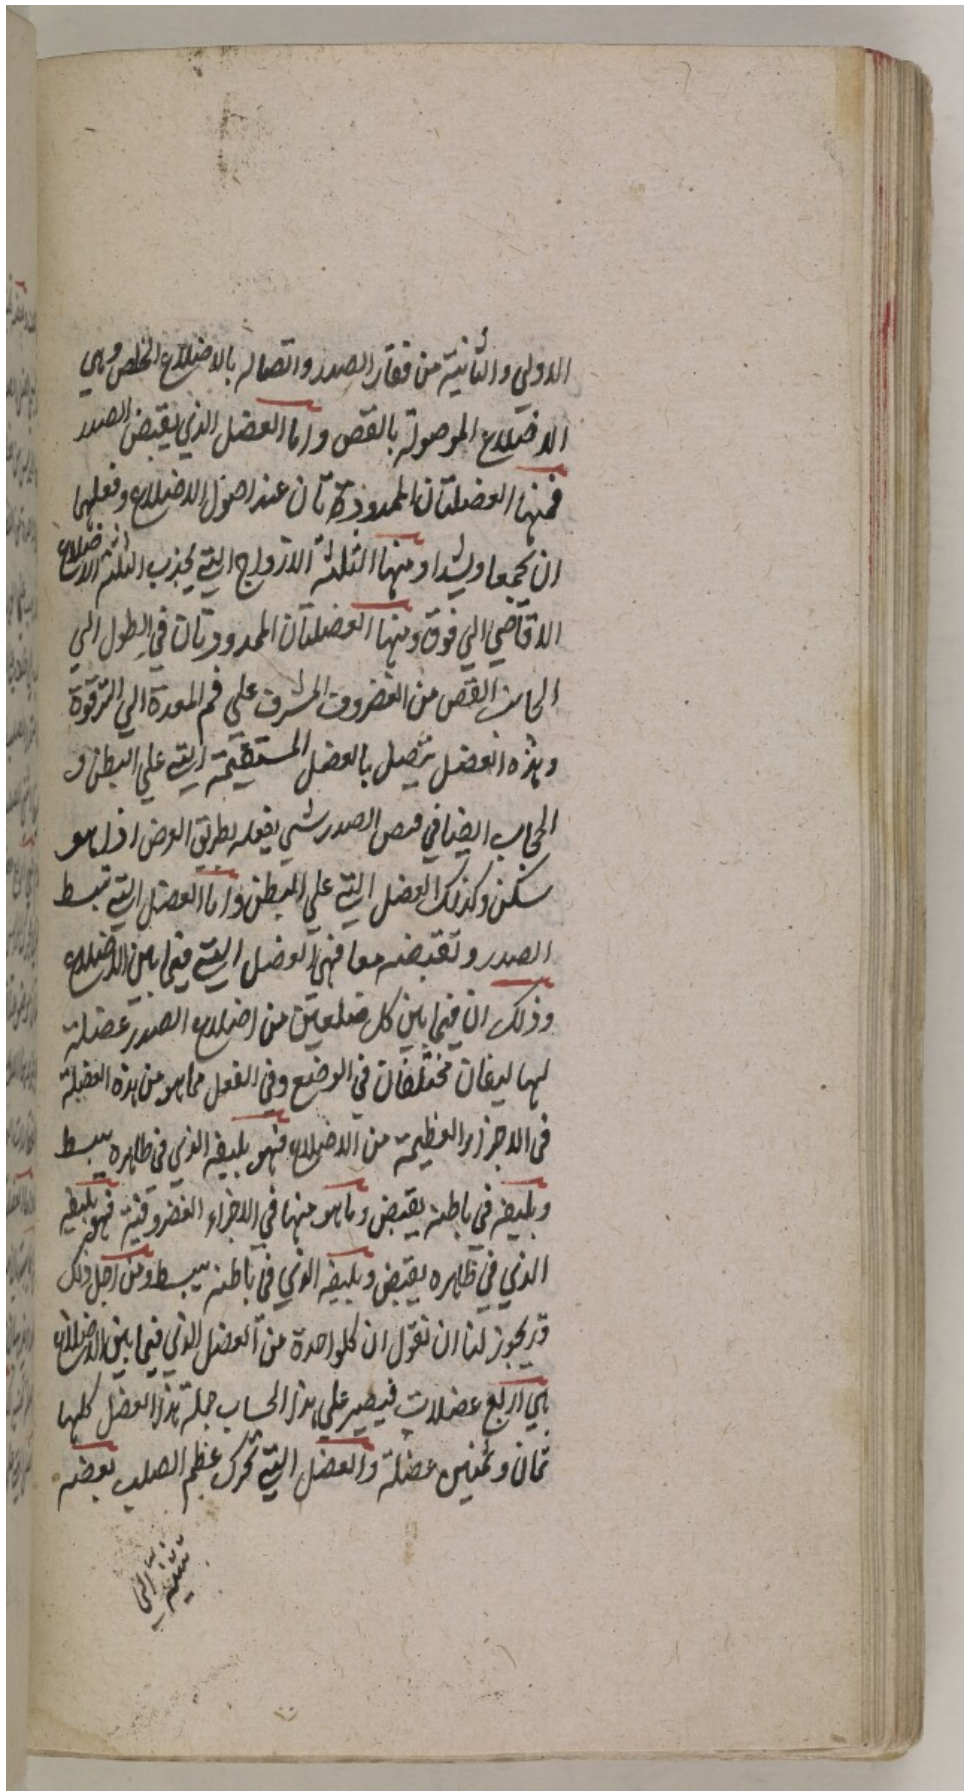 الاولي والثانية من فقار الصدر واتصاله بالاضلاع الخلص وهي
الاضلاع الموصولة بالقص واما العضل الذي يقبض الصدر
فمنها العضلتان الممدودتان عند اصول الاضلاع وفعلهما
ان يجمعا ويشدا ومنها الثلثة الازواج التي يجذب الثلثة الاضلاع
الاقاصي الي فوق ومنها العضلتان الممدودتان في الطول الي
القص من الغضروف المشرف علي فم المعدة الي الترقوة
وهذه العضل يتصل بالعضل المستقيمة التي علي البطن و
الحجاب ايضا في الصدر شي يفعله بطريق العرض اذا هو
سكن وكذلك العضل التي علي البطن واما العضل التي تبسط
الصدر وتقبضه معا فهي العضل التي فيما بين الاضلاع
وذلك ان فيما بين كل ضلعين من اضلاع الصدر عضلة
لها ليفان مختلفان في الوضع وفي الفعل مما هو من هذه العضلة
في الاجزاء العظيمة من الاضلاع فهو بليفه الذي في ظاهره يبسط
وبليفه في باطنه يقبض وما هو منها في الاجزاء الغضروفية فهو بليفه
الذي في ظاهره يقبض وبليفه الذي في باطنه يبسط ومن اجل ذلك
قد يجوز لنا ان نقول ان كلواحدة من العضل الذي فيما بين الاضلاع
هي اربع عضلات فيصير علي هذا الحساب جملة هذا العضل كلها
ثمان وثمنين عضلة والعضل التي تحرك عظم الصلب بعضه